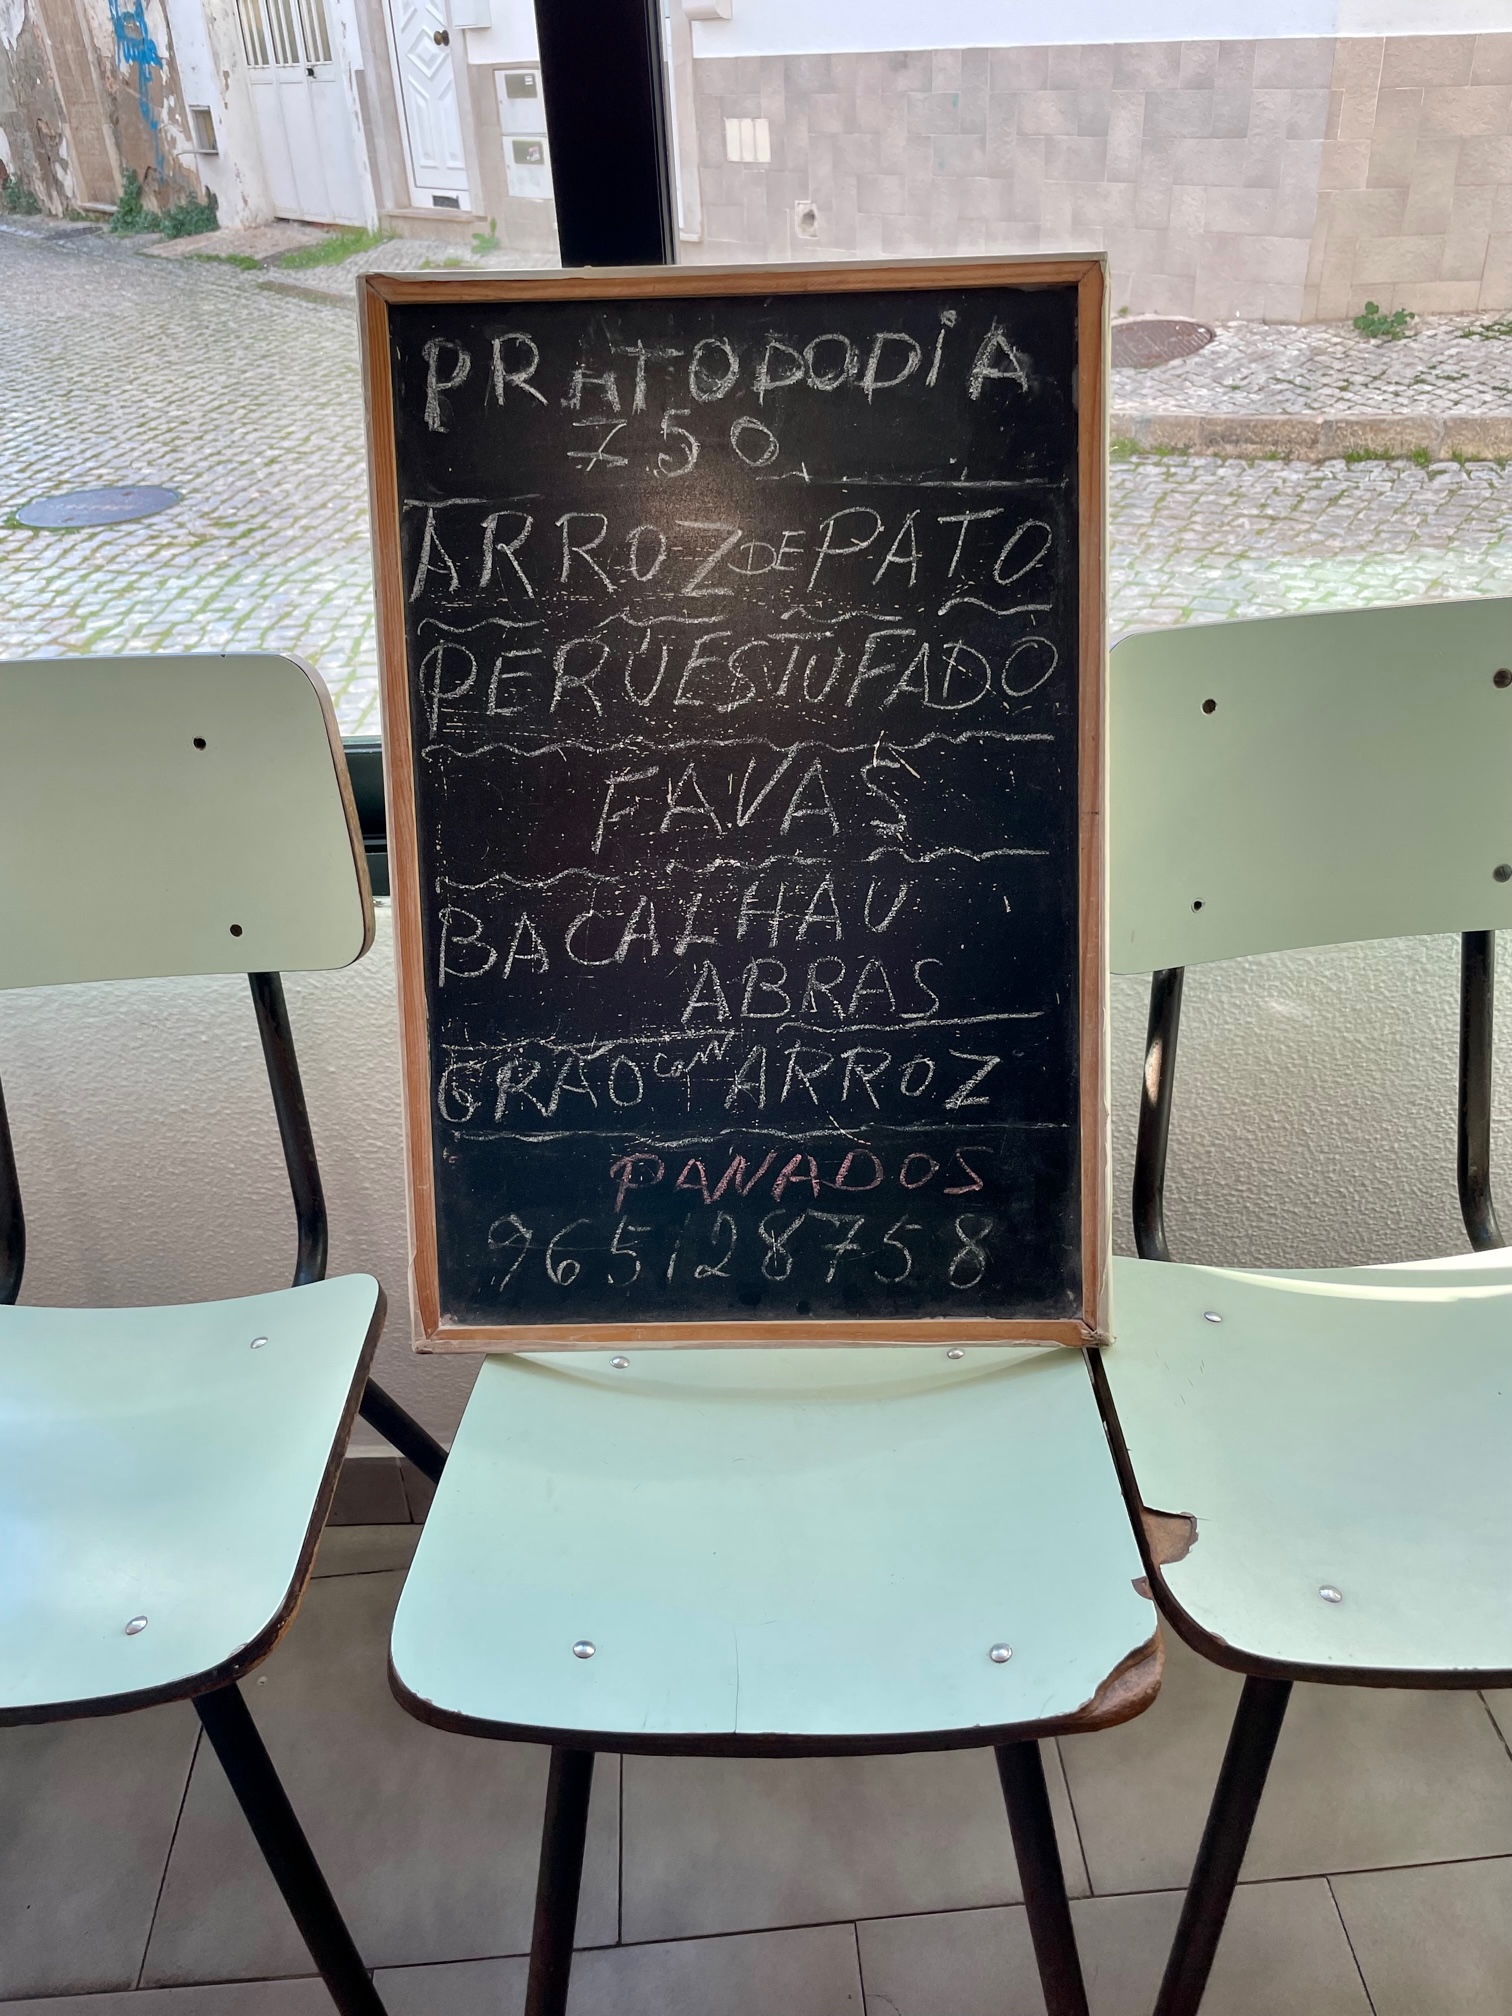 PRATO DO DIA
750
ARROZ DE PATO
PERU ESTUFADO
FAVAS
BACALHAU
A BRAS
GRAO com ARROZ
PANADOS
965128758